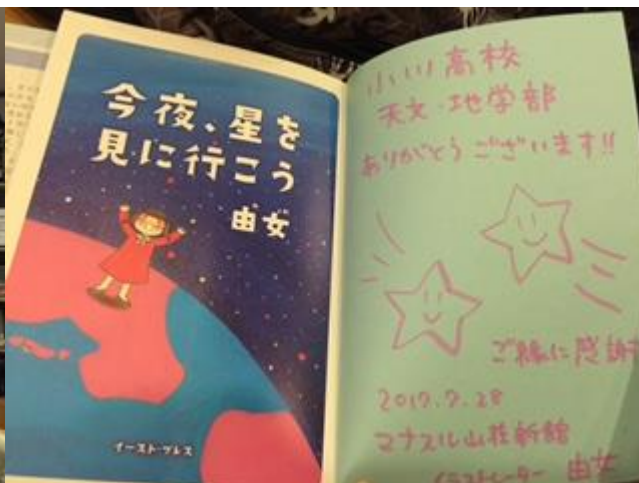 今夜、星を
見に行こう
由女
イースト・プレス
小川高校
天文・地学部
ありがとうございます!!
ご縁に感謝
2017.7.28
マナスル山荘新館
イラストレーター 由女